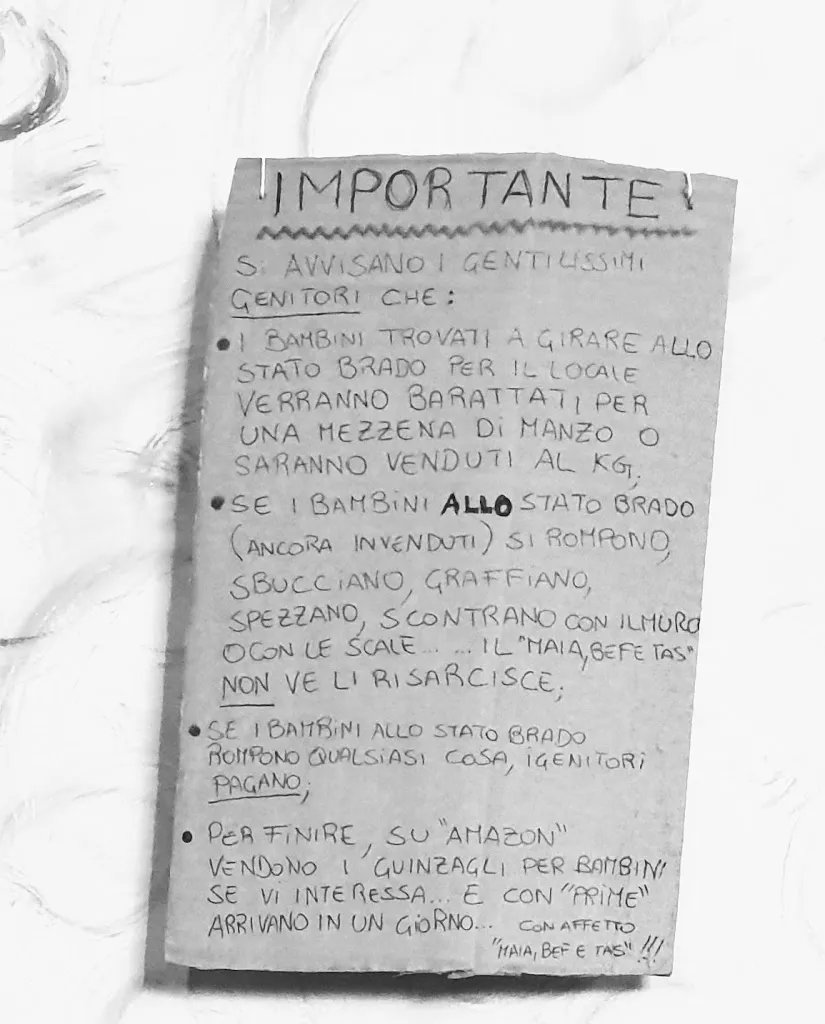 IMPORTANTE!
Si AVVISANO I GENTILISSIMI
GENITORI CHE:
• I BAMBINI TROVATI A GIRARE ALLO
STATO BRADO PER IL LOCALE
VERRANNO BARATTATI PER
UNA MEZZENA Di MANZO O
SARANNO VENDUTI AL KG;
• SE I BAMBINI ALLO STATO BRADO
(ANCORA INVENDUTI) SI ROMPONO,
SBUCCIANO, GRAFFIANO,
SPEZZANO, SCONTRANO CON IL MURO
O CON LE SCALE... ... IL "MAIA, BEF E TAS"
NON VE LI RISARCISCE;
• SE I BAMBINI ALLO STATO BRADO
ROMPONO QUALSIASI COSA, I GENITORI
PAGANO;
• PER FINIRE, SU "AMAZON"
VENDONO I GUINZAGLI PER BAMBINI
SE VI INTERESSA... E CON "PRIME"
ARRIVANO IN UN GIORNO... CON AFFETTO
"MAIA, BEF E TAS" !!!